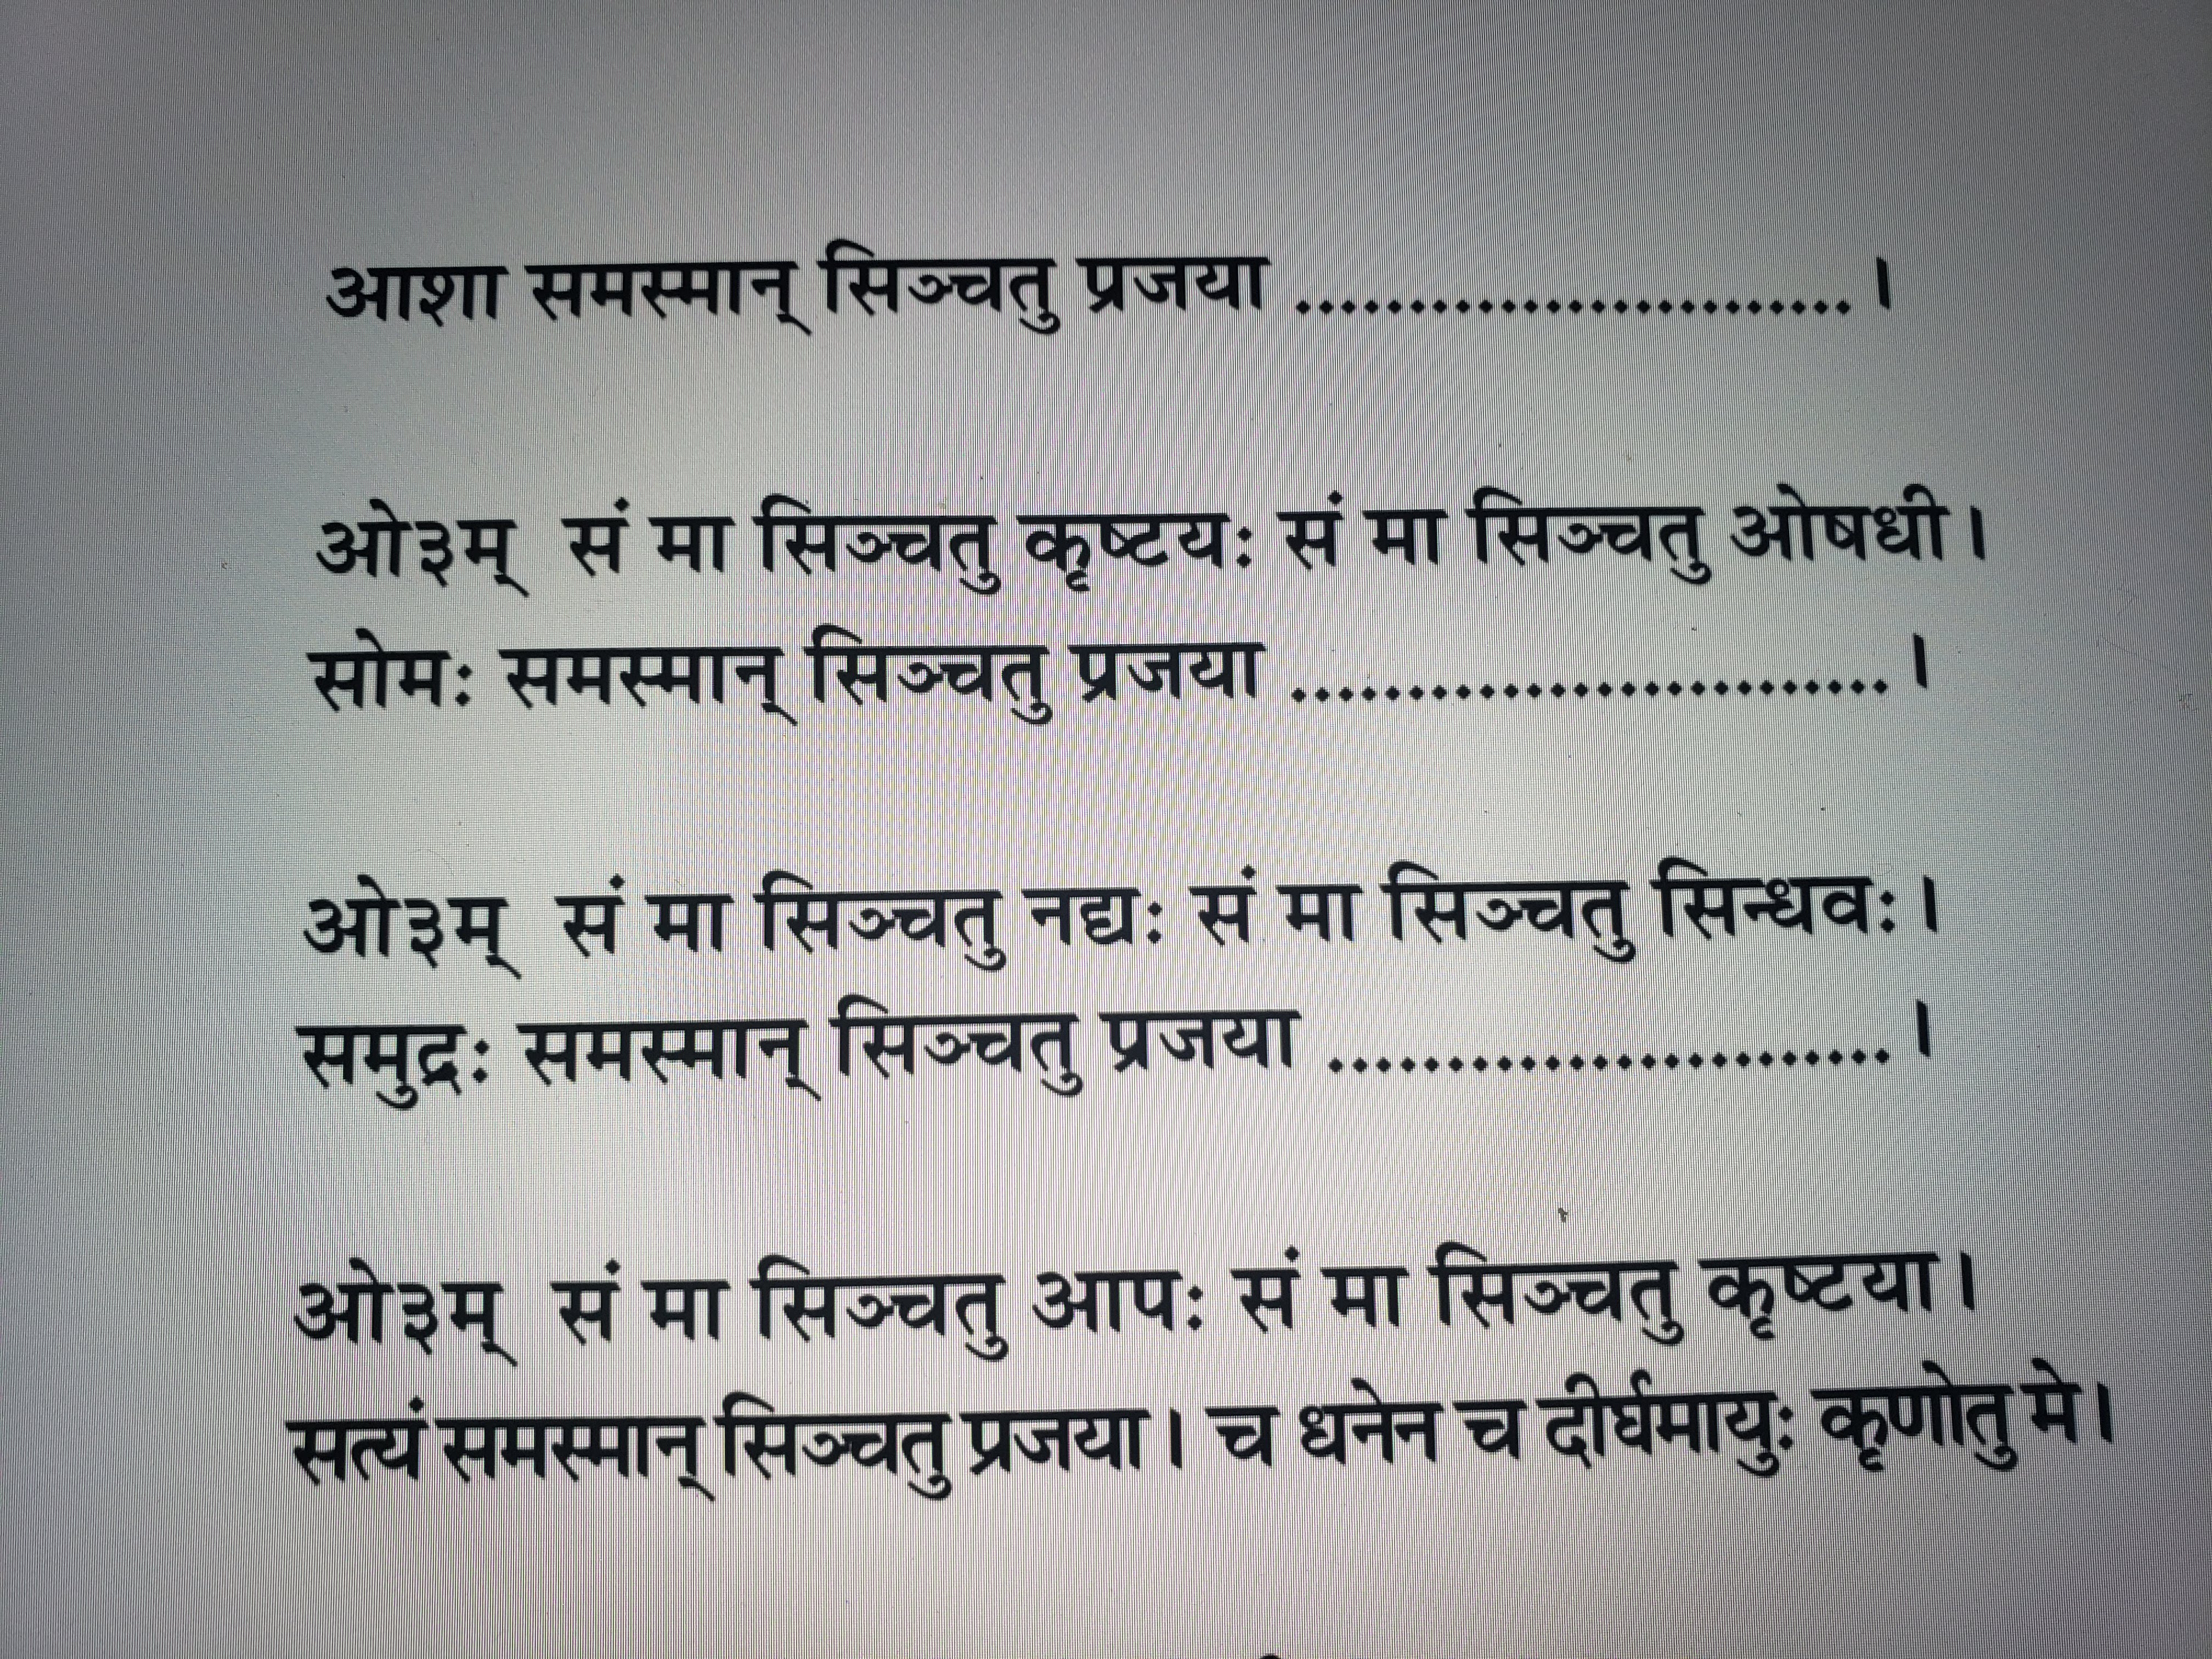 आशा समस्मान् सिञ्चतु प्रजया ........................ ।
ओ३म् सं मा सिञ्चतु कृष्टयः सं मा सिञ्चतु ओषधी।
सोमः समस्मान् सिञ्चतु प्रजया .......................... ।
ओ३म् सं मा सिञ्चतु नद्यः सं मा सिञ्चतु सिन्धवः।
समुद्रः समस्मान् सिञ्चतु प्रजया ........................ ।
ओ३म् सं मा सिञ्चतु आपः सं मा सिञ्चतु कृष्टया।
सत्यं समस्मान् सिञ्चतु प्रजया। च धनेन च दीर्घमायुः कृणोतु मे।